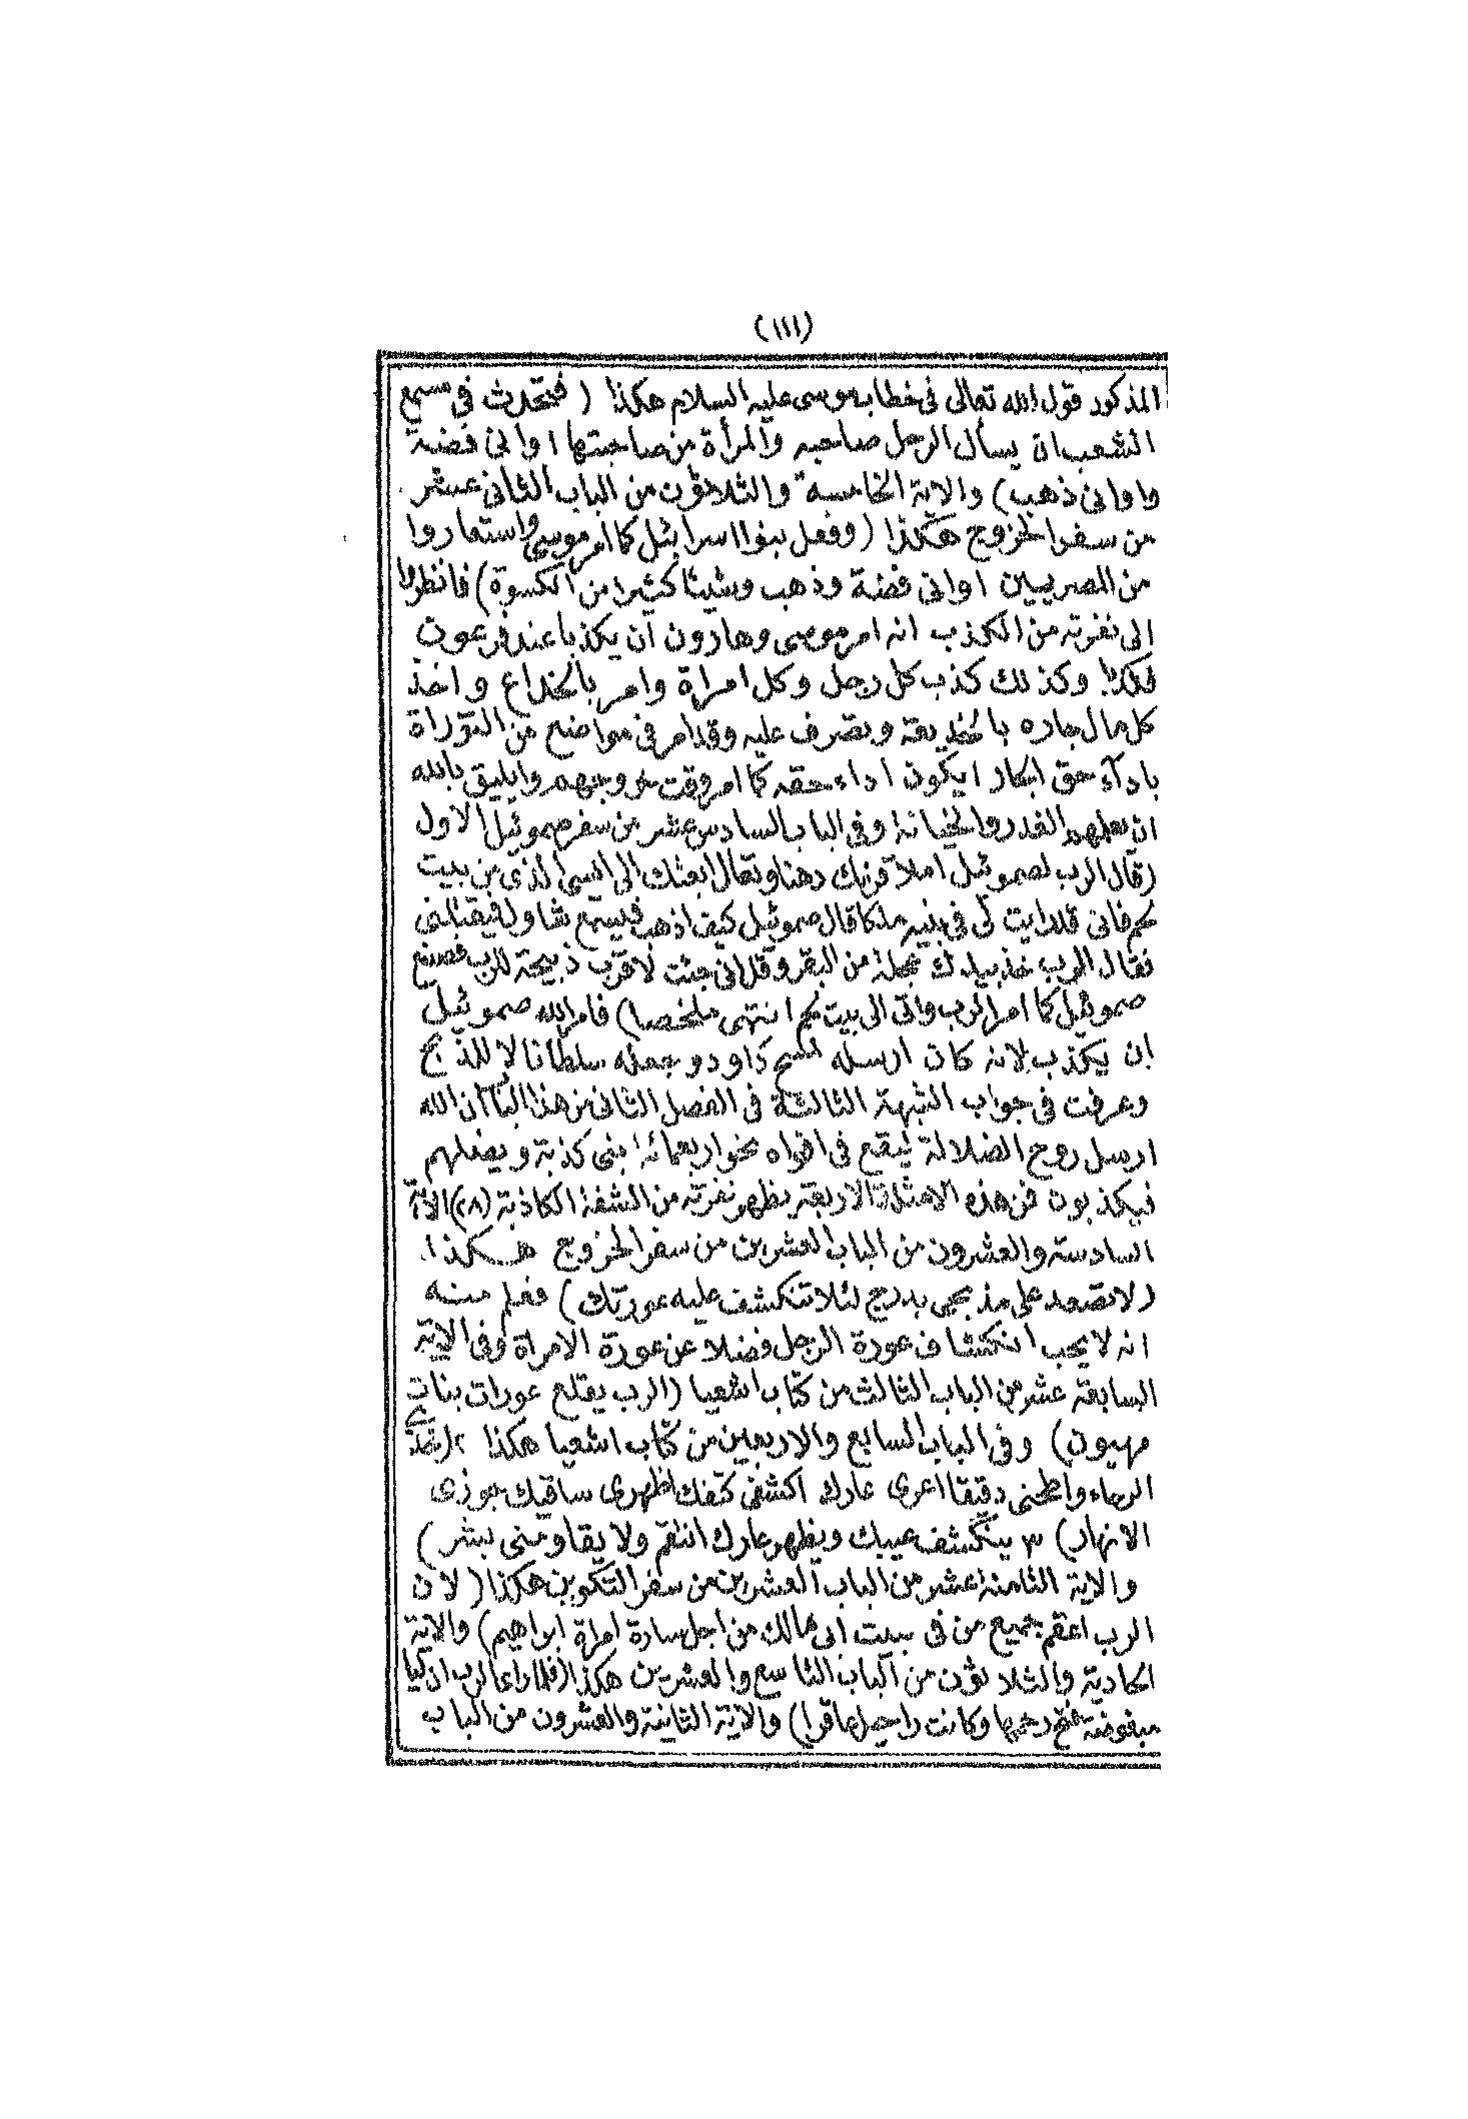 (١١١)
المذكور قول الله تعالى فى خطاب موسى عليه السلام هكذا ( فتحدث فى مسمع
الشعب ان يسأل الرجل صاحبه والمرأة من صاحبتها اوانى فضة
واوانى ذهب) والاية الخامسة والثلاثون من الباب الثانى عشر
من سفر الخروج هكذا (وفعل بنوا اسرائيل كما امر موسى واستعاروا
من المصريين اوانى فضة وذهب وشيئا كثيرا من الكسوة) فانظروا
الى نفرته من الكذب انه امر موسى وهارون أن يكذبا عند فرعون
فكذبا وكذلك كذب كل رجل وكل امراة وامر بالخداع واخذ
كل مال جاره بالخديعة وتصرف عليه وقد امر فى مواضع من التوراة
بادآء حق الجار ايكون اداء حقه كما امر وقت خروجهم وايليق بالله
ان يعلمهم الغدر والخيانة وفى الباب السادس عشر من سفر صموئيل الاول
(قال الرب لصموئيل املا قرنك دهنا وتعال ابعثك الى ايسى الذى من بيت
لحم فانى قد رايت لى فى بنيه ملكا قال صموئيل كيف اذهب فيسمع شاول فيقتلنى
فقال الرب خذ بيدك عجلة من البقر وقل انى جئت لاقرب ذبيحة للرب فصنع
صموئيل كما امر الرب واتى الى بيت لحم انتهى ملخصا) فامر الله صموئيل
ان يكذب لانه كان ارسله لمسح داود وجعله سلطانا لا للذبح
وعرفت فى جواب الشبهة الثالثة فى الفصل الثانى من هذا الباب ان الله
ارسل روح الضلالة ليقع فى افواه نحو اربعمائة بنى كذبة ويضلهم
فيكذبون فمن هذه الامثلة الاربعة يظهر نفرته من الشفة الكاذبة (٢٨) الاية
السادسة والعشرون من الباب العشرين من سفر الخروج هكذا
(لا تصعد على مذبحى بدرج لئلا تنكشف عليه عورتك) فعلم منه
انه لا يحب انكشاف عورة الرجل فضلا عن عورة الامراة وفى الاية
السابعة عشر من الباب الثالث من كتاب اشعيا (الرب يقلع عورات بنات
صهيون) وفى الباب السابع والاربعين من كتاب اشعيا هكذا ٢ (خذى
الرحاء واطحنى دقيقا اعرى عارك اكشفى كتفك اظهرى ساقيك جوزى
الانهار) ٣ ينكشف عيبك ويظهر عارك انتقم ولا يقاومنى بشر)
والاية الثامنة عشر من الباب العشرين من سفر التكوين هكذا (لان
الرب اعقم جميع من فى بيت ابى مالك من اجل سارة امراة ابراهيم) والاية
الحادية والثلاثون من الباب التاسع والعشرين هكذا (فلما راء الرب ان ليا
مبغوضة فتح رحمها وكانت راحيل عاقرا) والاية الثانية والعشرون من الباب